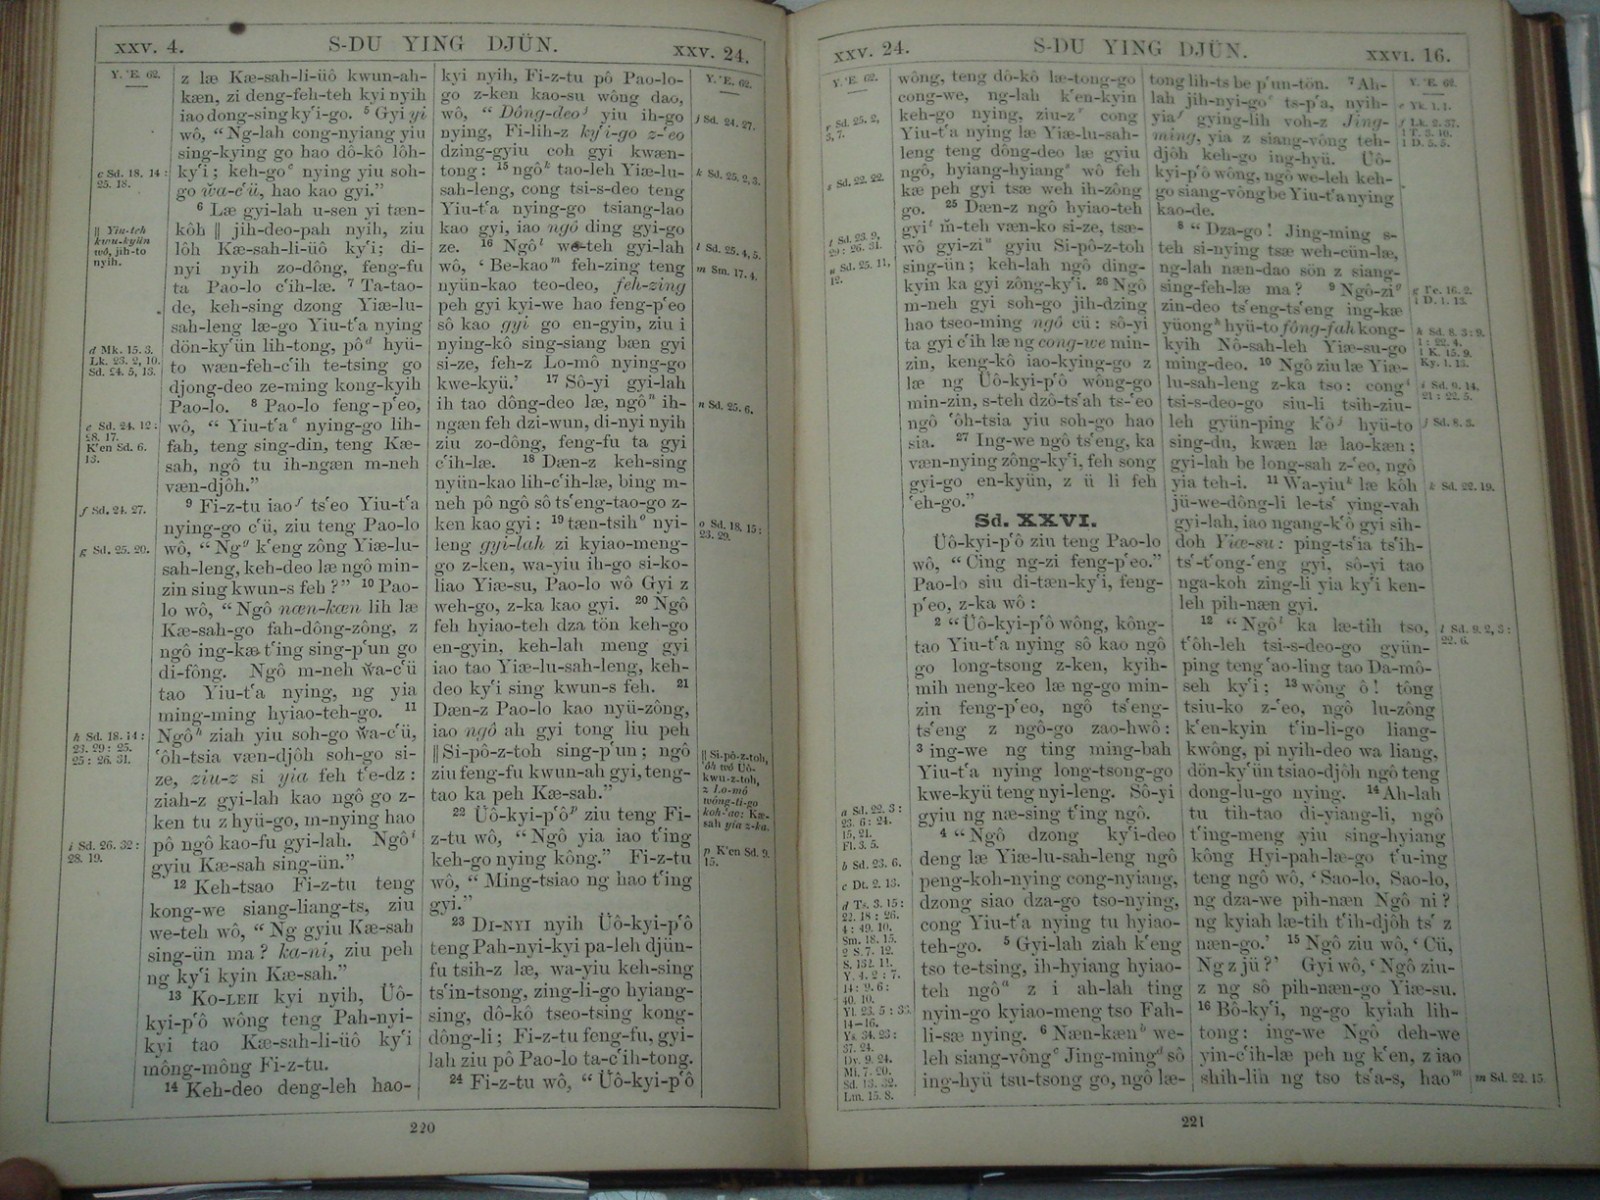 XXV. 4.
S-DU YING DJÜN.
XXV. 24.
Y. 'E. 62.
c Sd. 18. 14 :
25. 18.
|| Yiu-teh
kwu-kyün
wô, jih-to
nyih.
d Mk. 15. 3.
Lk. 23. 2, 10.
Sd. 24. 5, 13.
e Sd. 24. 12 :
28. 17.
K'en Sd. 6.
13.
f Sd. 24. 27.
g Sd. 25. 20.
h Sd. 18. 14 :
23. 29 : 25.
25 : 26. 31.
i Sd. 26. 32 :
28. 19.
z læ Kæ-sah-li-üô kwun-ah-
kæn, zi deng-feh-teh kyi nyih
iao dong-sing ky'i-go. 5 Gyi yi
wô, “ Ng-lah cong-nyiang yiu
sing-kying go hao dô-kô lôh-
ky'i ; keh-go c nying yiu soh-
go wa-c'ü, hao kao gyi.”
6 Læ gyi-lah u-sen yi tæn-
kôh || jih-deo-pah nyih, ziu
lôh Kæ-sah-li-üô ky'i ; di-
nyi nyih zo-dông, feng-fu
ta Pao-lo c'ih-læ. 7 Ta-tao-
de, keh-sing dzong Yiæ-lu-
sah-leng læ-go Yiu-t'a nying
dön-ky'ün lih-tong, pô d hyü-
to wæn-feh-c'ih te-tsing go
djong-deo ze-ming kong-kyih
Pao-lo. 8 Pao-lo feng-p'eo,
wô, “ Yiu-t'a e nying-go lih-
fah, teng sing-din, teng Kæ-
sah, ngô tu ih-ngæn m-neh
væn-djôh.”
9 Fi-z-tu iao f ts'eo Yiu-t'a
nying-go c'ü, ziu teng Pao-lo
wô, “ Ng g k'eng zông Yiæ-lu-
sah-leng, keh-deo læ ngô min-
zin sing kwun-s feh ?” 10 Pao-
lo wô, “ Ngô næn-kæn lih læ
Kæ-sah-go fah-dông-zông, z
ngô ing-kæ t'ing sing-p'un go
di-fông. Ngô m-neh wa-c'ü
tao Yiu-t'a nying, ng yia
ming-ming hyiao-teh-go. 11
Ngô h ziah yiu soh-go wa-c'ü,
'ôh-tsia væn-djôh soh-go si-
ze, ziu-z si yia feh t'e-dz :
ziah-z gyi-lah kao ngô go z-
ken tu z hyü-go, m-nying hao
pô ngô kao-fu gyi-lah. Ngô i
gyiu Kæ-sah sing-ün.”
12 Keh-tsao Fi-z-tu teng
kong-we siang-liang-ts, ziu
we-teh wô, “ Ng gyiu Kæ-sah
sing-ün ma ? ka-ni, ziu peh
ng ky'i kyin Kæ-sah.”
13 KO-LEH kyi nyih, Üô-
kyi-p'ô wông teng Pah-nyi-
kyi tao Kæ-sah-li-üô ky'i
mông-mông Fi-z-tu.
14 Keh-deo deng-leh hao-
kyi nyih, Fi-z-tu pô Pao-lo-
go z-ken kao-su wông dao,
wô, “ Dông-deo j yiu ih-go
nying, Fi-lih-z ky'i-go z-'eo
dzing-gyiu coh gyi kwæn-
tong : 15 ngô k tao-leh Yiæ-lu-
sah-leng, cong tsi-s-deo teng
Yiu-t'a nying-go tsiang-lao
kao gyi, iao ngô ding gyi-go
ze. 16 Ngô l we-teh gyi-lah
wô, ‘ Be-kao m feh-zing teng
nyün-kao teo-deo, feh-zing
peh gyi kyi-we hao feng-p'eo
sô kao gyi go en-gyin, ziu i
nying-kô sing-siang bæn gyi
si-ze, feh-z Lo-mô nying-go
kwe-kyü.’ 17 Sô-yi gyi-lah
ih tao dông-deo læ, ngô n ih-
ngæn feh dzi-wun, di-nyi nyih
ziu zo-dông, feng-fu ta gyi
c'ih-læ. 18 Dæn-z keh-sing
nyün-kao lih-c'ih-læ, bing m-
neh pô ngô sô ts'eng-tao-go z-
ken kao gyi : 19 tæn-tsih o nyi-
leng gyi-lah zi kyiao-meng-
go z-ken, wa-yiu ih-go si-ko-
liao Yiæ-su, Pao-lo wô Gyi z
weh-go, z-ka kao gyi. 20 Ngô
feh hyiao-teh dza tön keh-go
en-gyin, keh-lah meng gyi
iao tao Yiæ-lu-sah-leng, keh-
deo ky'i sing kwun-s feh. 21
Dæn-z Pao-lo kao nyü-zông,
iao ngô ah gyi tong liu peh
|| Si-pô-z-toh sing-p'un ; ngô
ziu feng-fu kwun-ah gyi, teng-
tao ka peh Kæ-sah.”
22 Üô-kyi-p'ô p ziu teng Fi-
z-tu wô, “ Ngô yia iao t'ing
keh-go nying kông.” Fi-z-tu
wô, “ Ming-tsiao ng hao t'ing
gyi.”
23 DI-NYI nyih Üô-kyi-p'ô
teng Pah-nyi-kyi pa-leh djün-
fu tsih-z læ, wa-yiu keh-sing
ts'in-tsong, zing-li-go hyiang-
sing, dô-kô tseo-tsing kong-
dông-li ; Fi-z-tu feng-fu, gyi-
lah ziu pô Pao-lo ta-c'ih-tong.
24 Fi-z-tu wô, “ Üô-kyi-p'ô
Y. 'E. 62.
j Sd. 24. 27.
k Sd. 25. 2, 3.
l Sd. 25. 4, 5.
m Sm. 17. 4.
n Sd. 25. 6.
o Sd. 18. 15 :
23. 29.
|| Si-pô-z-toh,
'ôh wô Üô-
kwu-z-toh,
z Lo-mô
wông-ti-go
koh-'ao: Kæ-
sah yia z-ka.
p K'en Sd. 9.
15.
220
XXV. 24.
S-DU YING DJÜN.
XXVI. 16.
Y. 'E. 62.
r Sd. 25. 2,
3, 7.
s Sd. 22. 22.
t Sd. 23. 9,
29 : 26. 31.
u Sd. 25. 11,
12.
a Sd. 22. 3 :
23. 6 : 24.
15, 21.
Fl. 3. 5.
b Sd. 23. 6.
c Dt. 2. 13.
d Ts. 3. 15 :
22. 18 : 26.
4 : 49. 10.
Sm. 18. 15.
2 S. 7. 12.
S. 132. 11.
Y. 4. 2 : 7.
14 : 9. 6 :
40. 10.
Yl. 23. 5 : 33.
14–16.
Ys. 34. 23 :
37. 24.
Dy. 9. 24.
Mi. 7. 20.
Sd. 13. 32.
Lm. 15. 8.
wông, teng dô-kô læ-tong-go
cong-we, ng-lah k'en-kyin
keh-go nying, ziu-z r cong
Yiu-t'a nying læ Yiæ-lu-sah-
leng teng dông-deo læ gyiu
ngô, hyiang-hyiang s wô feh
kæ peh gyi tsæ weh ih-zông
go. 25 Dæn-z ngô hyiao-teh
gyi t m-teh væn-ko si-ze, tsæ-
wô gyi-zi u gyiu Si-pô-z-toh
sing-ün ; keh-lah ngô ding-
kyin ka gyi zông-ky'i. 26 Ngô
m-neh gyi soh-go jih-dzing
hao tseo-ming ngô cü : sô-yi
ta gyi c'ih læ ng cong-we min-
zin, keng-kô iao-kying-go z
læ ng Üô-kyi-p'ô wông-go
min-zin, s-teh dzô-ts'ah ts-'eo
ngô 'ôh-tsia yiu soh-go hao
sia. 27 Ing-we ngô ts'eng, ka
væn-nying zông-ky'i, feh song
gyi-go en-kyün, z ü li feh
'eh-go.”
Sd. XXVI.
Üô-kyi-p'ô ziu teng Pao-lo
wô, “ Cing ng-zi feng-p'eo.”
Pao-lo siu di-tæn-ky'i, feng-
p'eo, z-ka wô :
2 “ Üô-kyi-p'ô wông, kông-
tao Yiu-t'a nying sô kao ngô
go long-tsong z-ken, kyih-
mih neng-keo læ ng-go min-
zin feng-p'eo, ngô ts'eng-
ts'eng z ngô-go zao-hwô :
3 ing-we ng ting ming-bah
Yiu-t'a nying long-tsong-go
kwe-kyü teng nyi-leng. Sô-yi
gyiu ng næ-sing t'ing ngô.
4 “ Ngô dzong ky'i-deo
deng læ Yiæ-lu-sah-leng ngô
peng-koh-nying cong-nyiang,
dzong siao dza-go tso-nying,
cong Yiu-t'a nying tu hyiao-
teh-go. 5 Gyi-lah ziah k'eng
tso te-tsing, ih-hyiang hyiao-
teh ngô a z i ah-lah ting
nyin-go kyiao-meng tso Fah-
li-sæ nying. 6 Næn-kæn b we-
leh siang-vông c Jing-ming d sô
ing-hyü tsu-tsong go, ngô læ-
tong lih-ts be p'un-tön. 7 Ah-
lah jih-nyi-go e ts-p'a, nyih-
yia f gying-lih voh-z Jing-
ming, yia z siang-vông teh-
djôh keh-go ing-hyü. Üô-
kyi-p'ô wông, ngô we-leh keh-
go siang-vông be Yiu-t'a nying
kao-de.
8 “ Dza-go ! Jing-ming s-
teh si-nying tsæ weh-cün-læ,
ng-lah næn-dao sön z siang-
sing-feh-læ ma ? 9 Ngô-zi g
zin-deo ts'eng-ts'eng ing-kæ
yüong h hyü-to fông-fah kong-
kyih Nô-sah-leh Yiæ-su-go
ming-deo. 10 Ngô ziu læ Yiæ-
lu-sah-leng z-ka tso : cong i
tsi-s-deo-go siu-li tsih-ziu-
leh gyün-ping k'ô j hyü-to
sing-du, kwæn læ lao-kæn ;
gyi-lah be long-sah z-'eo, ngô
yia teh-i. 11 Wa-yiu k læ kôh
jü-we-dông-li le-ts' ying-vah
gyi-lah, iao ngang-k'ô gyi sih-
doh Yiæ-su : ping-ts'ia ts'ih-
ts'-t'ong-'eng gyi, sô-yi tao
nga-koh zing-li yia ky'i ken-
leh pih-næn gyi.
12 “ Ngô l ka læ-tih tso,
t'ôh-leh tsi-s-deo-go gyün-
ping teng 'ao-ling tao Da-mô-
seh ky'i ; 13 wông ô ! tông
tsiu-ko z-'eo, ngô lu-zông
k'en-kyin t'in-li-go liang-
kwông, pi nyih-deo wa liang,
dön-ky'ün tsiao-djôh ngô teng
dong-lu-go nying. 14 Ah-lah
tu tih-tao di-yiang-li, ngô
t'ing-meng yiu sing-hyiang
kông Hyi-pah-læ-go t'u-ing
teng ngô wô, ‘ Sao-lo, Sao-lo,
ng dza-we pih-næn Ngô ni ?
ng kyiah læ-tih t'ih-djôh ts' z
næn-go.’ 15 Ngô ziu wô, ‘ Cü,
Ng z jü ?’ Gyi wô, ‘ Ngô ziu-
z ng sô pih-næn-go Yiæ-su.
16 Bô-ky'i, ng-go kyiah lih-
tong : ing-we Ngô deh-we
yin-c'ih-læ peh ng k'en, z iao
shih-lih ng tso ts'a-s, hao m
Y. 'E. 62.
e Yk. 1. 1.
f Lk. 2. 37.
1 T. 3. 10.
1 D. 5. 5.
g Fc. 16. 2.
1 D. 1. 13.
h Sd. 8. 3 : 9.
1 : 22. 4.
1 K. 15. 9.
Ky. 1. 13.
i Sd. 9. 14,
21 : 22. 5.
j Sd. 8. 3.
k Sd. 22. 19.
l Sd. 9. 2, 3 :
22. 6.
m Sd. 22. 15.
221